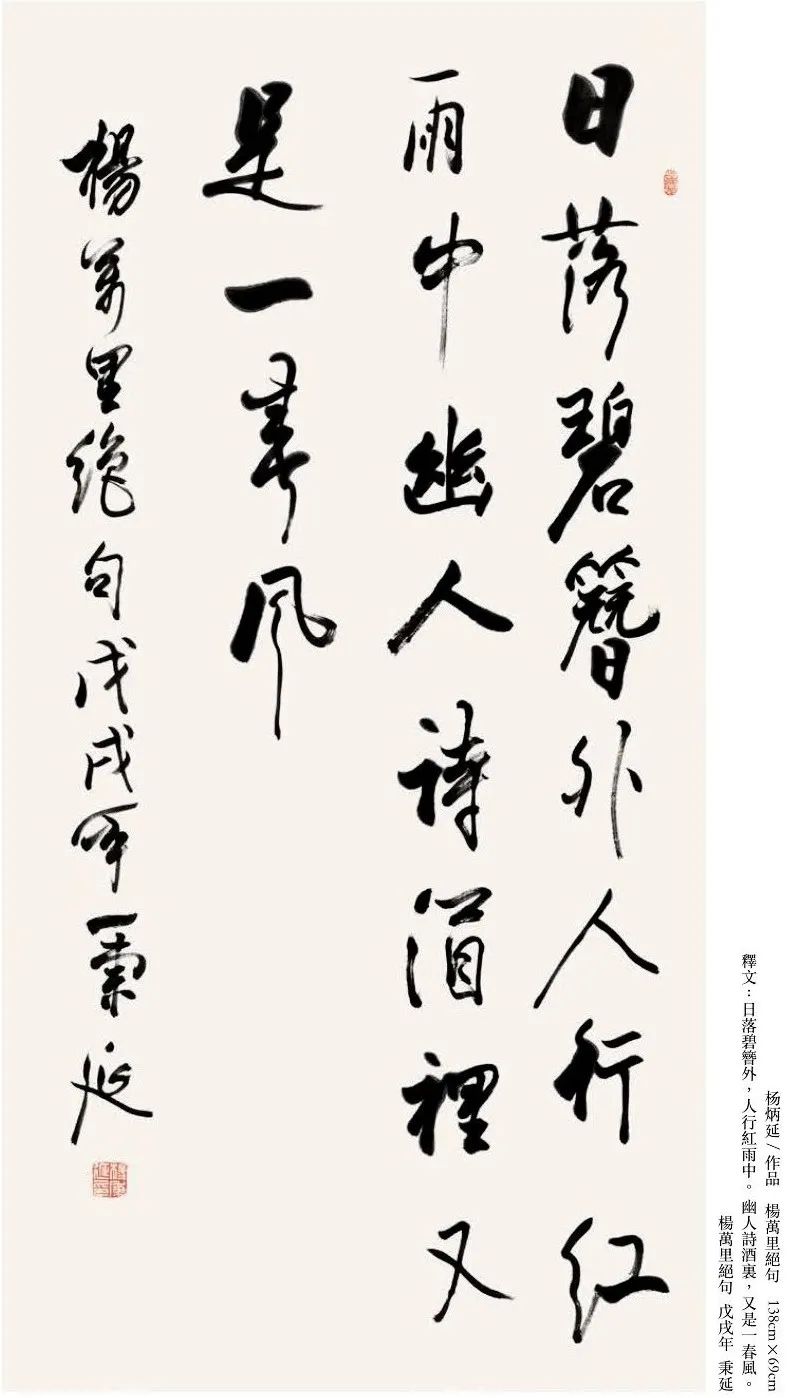 日落碧簪外人行红
雨中幽人詩酒裡又
是一春风
楊萬里絶句戊戌年秉延
杨炳延/作品 楊萬里絕句 138cm×69cm
釋文：日落碧簪外，人行紅雨中。幽人詩酒裏，又是一春風。
楊萬里絕句 戊戌年 秉延